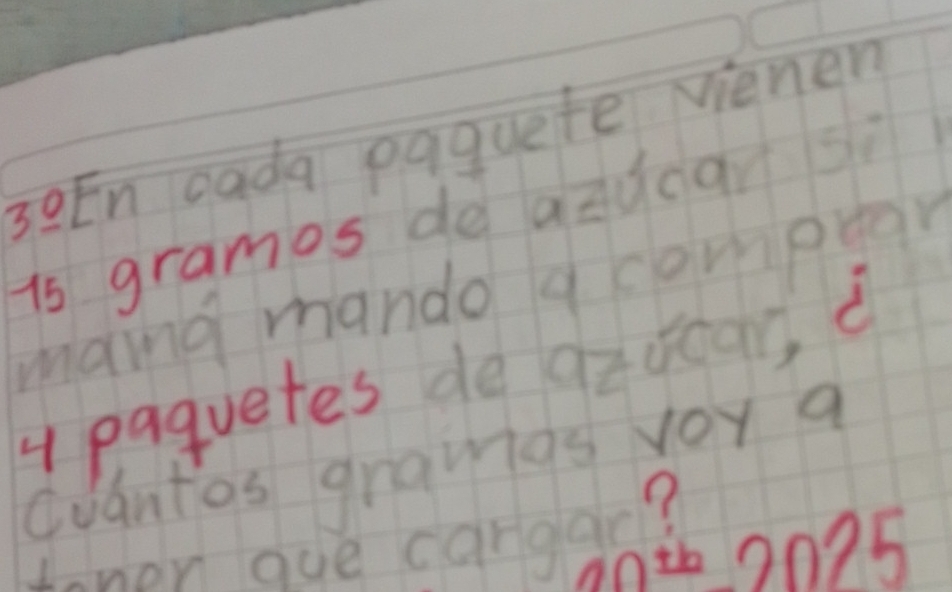 3ºEn cada paquete vienen
15 gramos de azúcar si
mamá mando a comprar
4 paquetes de azúcar, ¿
cuántos gramos voy a
tener que cargar?
20th 2025